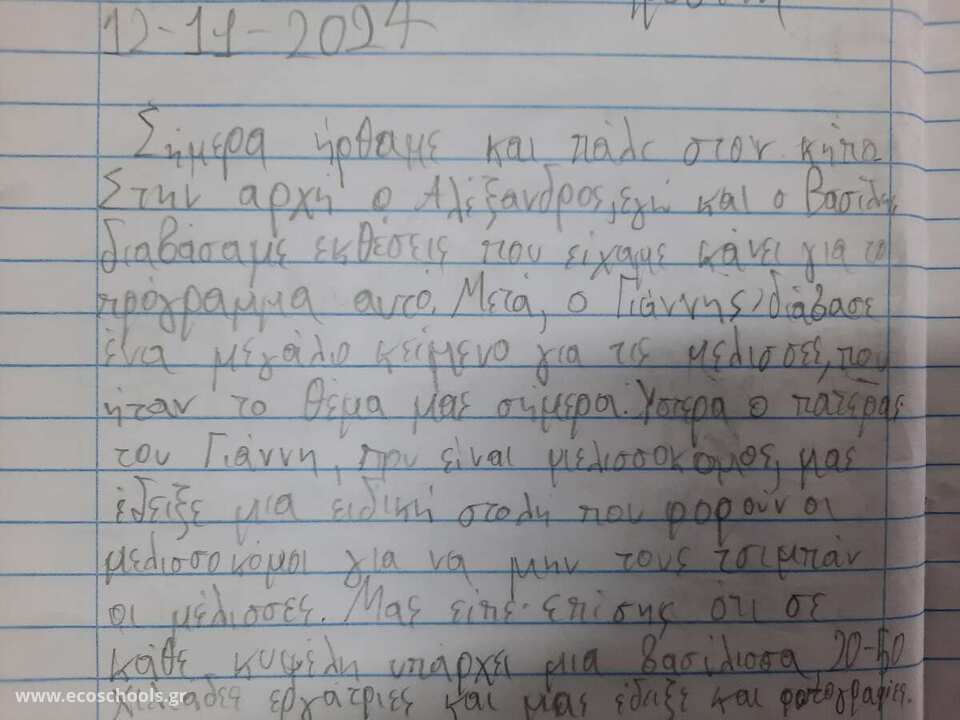 12-11-2024
Σήμερα ήρθαμε και πάλι στον κήπο
Στην αρχή ο Αλέξανδρος, εγώ και ο Βασίλης
διαβάσαμε εκθέσεις που είχαμε κάνει για το
πρόγραμμα αυτό. Μετά, ο Γιάννης διάβασε
ένα μεγάλο κείμενο για τις μέλισσες, που
ήταν το θέμα μας σήμερα. Ύστερα ο πατέρας
του Γιάννη, που είναι μελισσοκόμος, μας
έδειξε μια ειδική στολή που φορούν οι
μελισσοκόμοι για να μην τους τσιμπάν
οι μέλισσες. Μας είπε επίσης ότι σε
κάθε κυψέλη υπάρχει μια βασίλισσα 20-50
χιλιάδες εργάτριες και μας έδειξε και φωτογραφίες.
www.ecoschools.gr